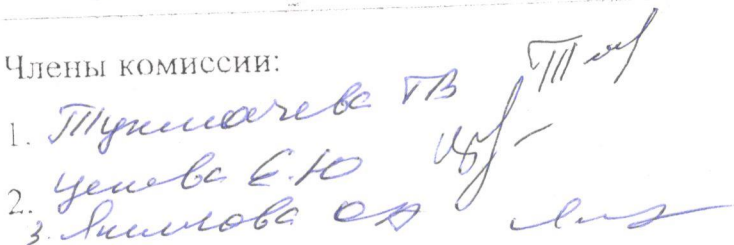 Члены комиссии:
1. Тукмачева ТВ
2. Цепева Е.Ю
3. Якимова ОА